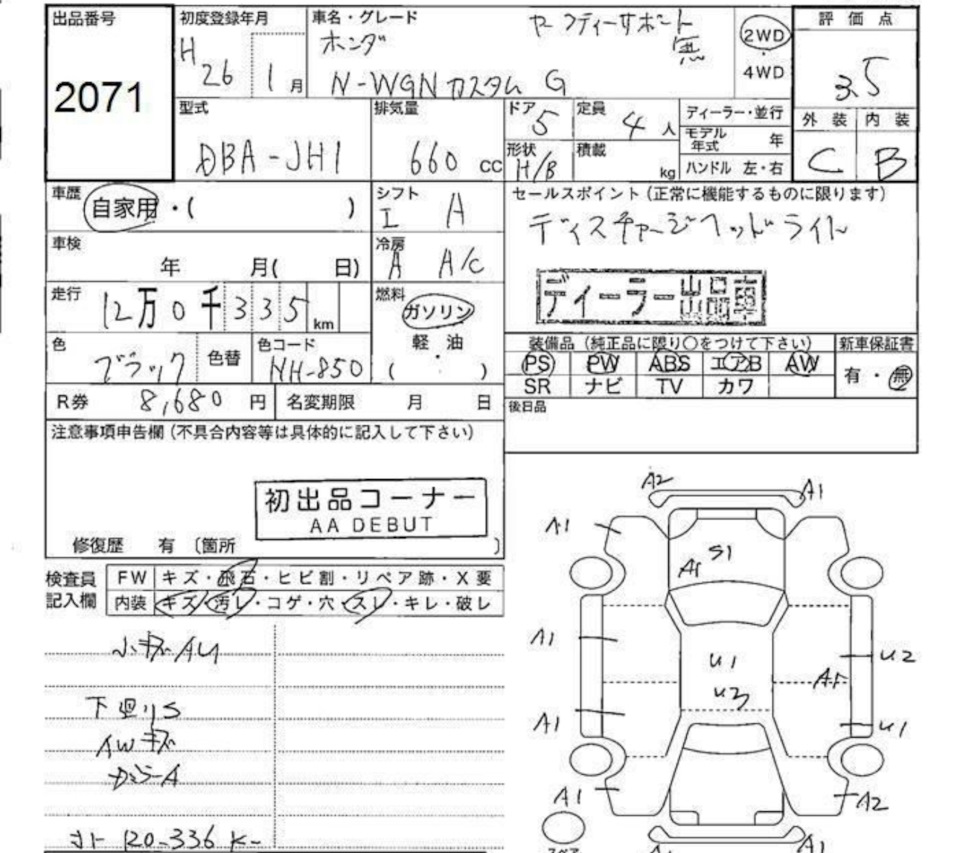 出品番号
2071
初度登録年月
H 26 1月
車名・グレード
ホンダ セーフティーサポート 無
N-WGN カスタム G
2WD
・
4WD
評価点
3.5
外装 内装
C B
型式
DBA-JH1
排気量
660 cc
ドア 5
定員 4 人
形状 H/B
積載 kg
ディーラー・並行
モデル年式 年
ハンドル 左・右
車歴
自家用・( )
シフト
I A
車検
年 月( 日)
冷房
A A/C
走行
12万0千335 km
燃料
ガソリン
軽油
( )
色
ブラック
色替
色コード
NH-850
R券 8,680円
名変期限 月 日
セールスポイント (正常に機能するものに限ります)
ディスチャージヘッドライト
ディーラー出品車
装備品 (純正品に限り○をつけて下さい)
PS PW ABS エアB AW
SR ナビ TV カワ
新車保証書
有・無
後日品
注意事項申告欄 (不具合内容等は具体的に記入して下さい)
初出品コーナー
AA DEBUT
修復歴 有 〔箇所 〕
検査員記入欄
FW キズ・飛石・ヒビ割・リペア跡・X要
内装 キズ・汚レ・コゲ・穴・スレ・キレ・破レ
小キズ AU
下廻りS
AWキズ
A2 A1
A1
S1
A1
U1
U3
U2
A1
U1
A1 A2
A1